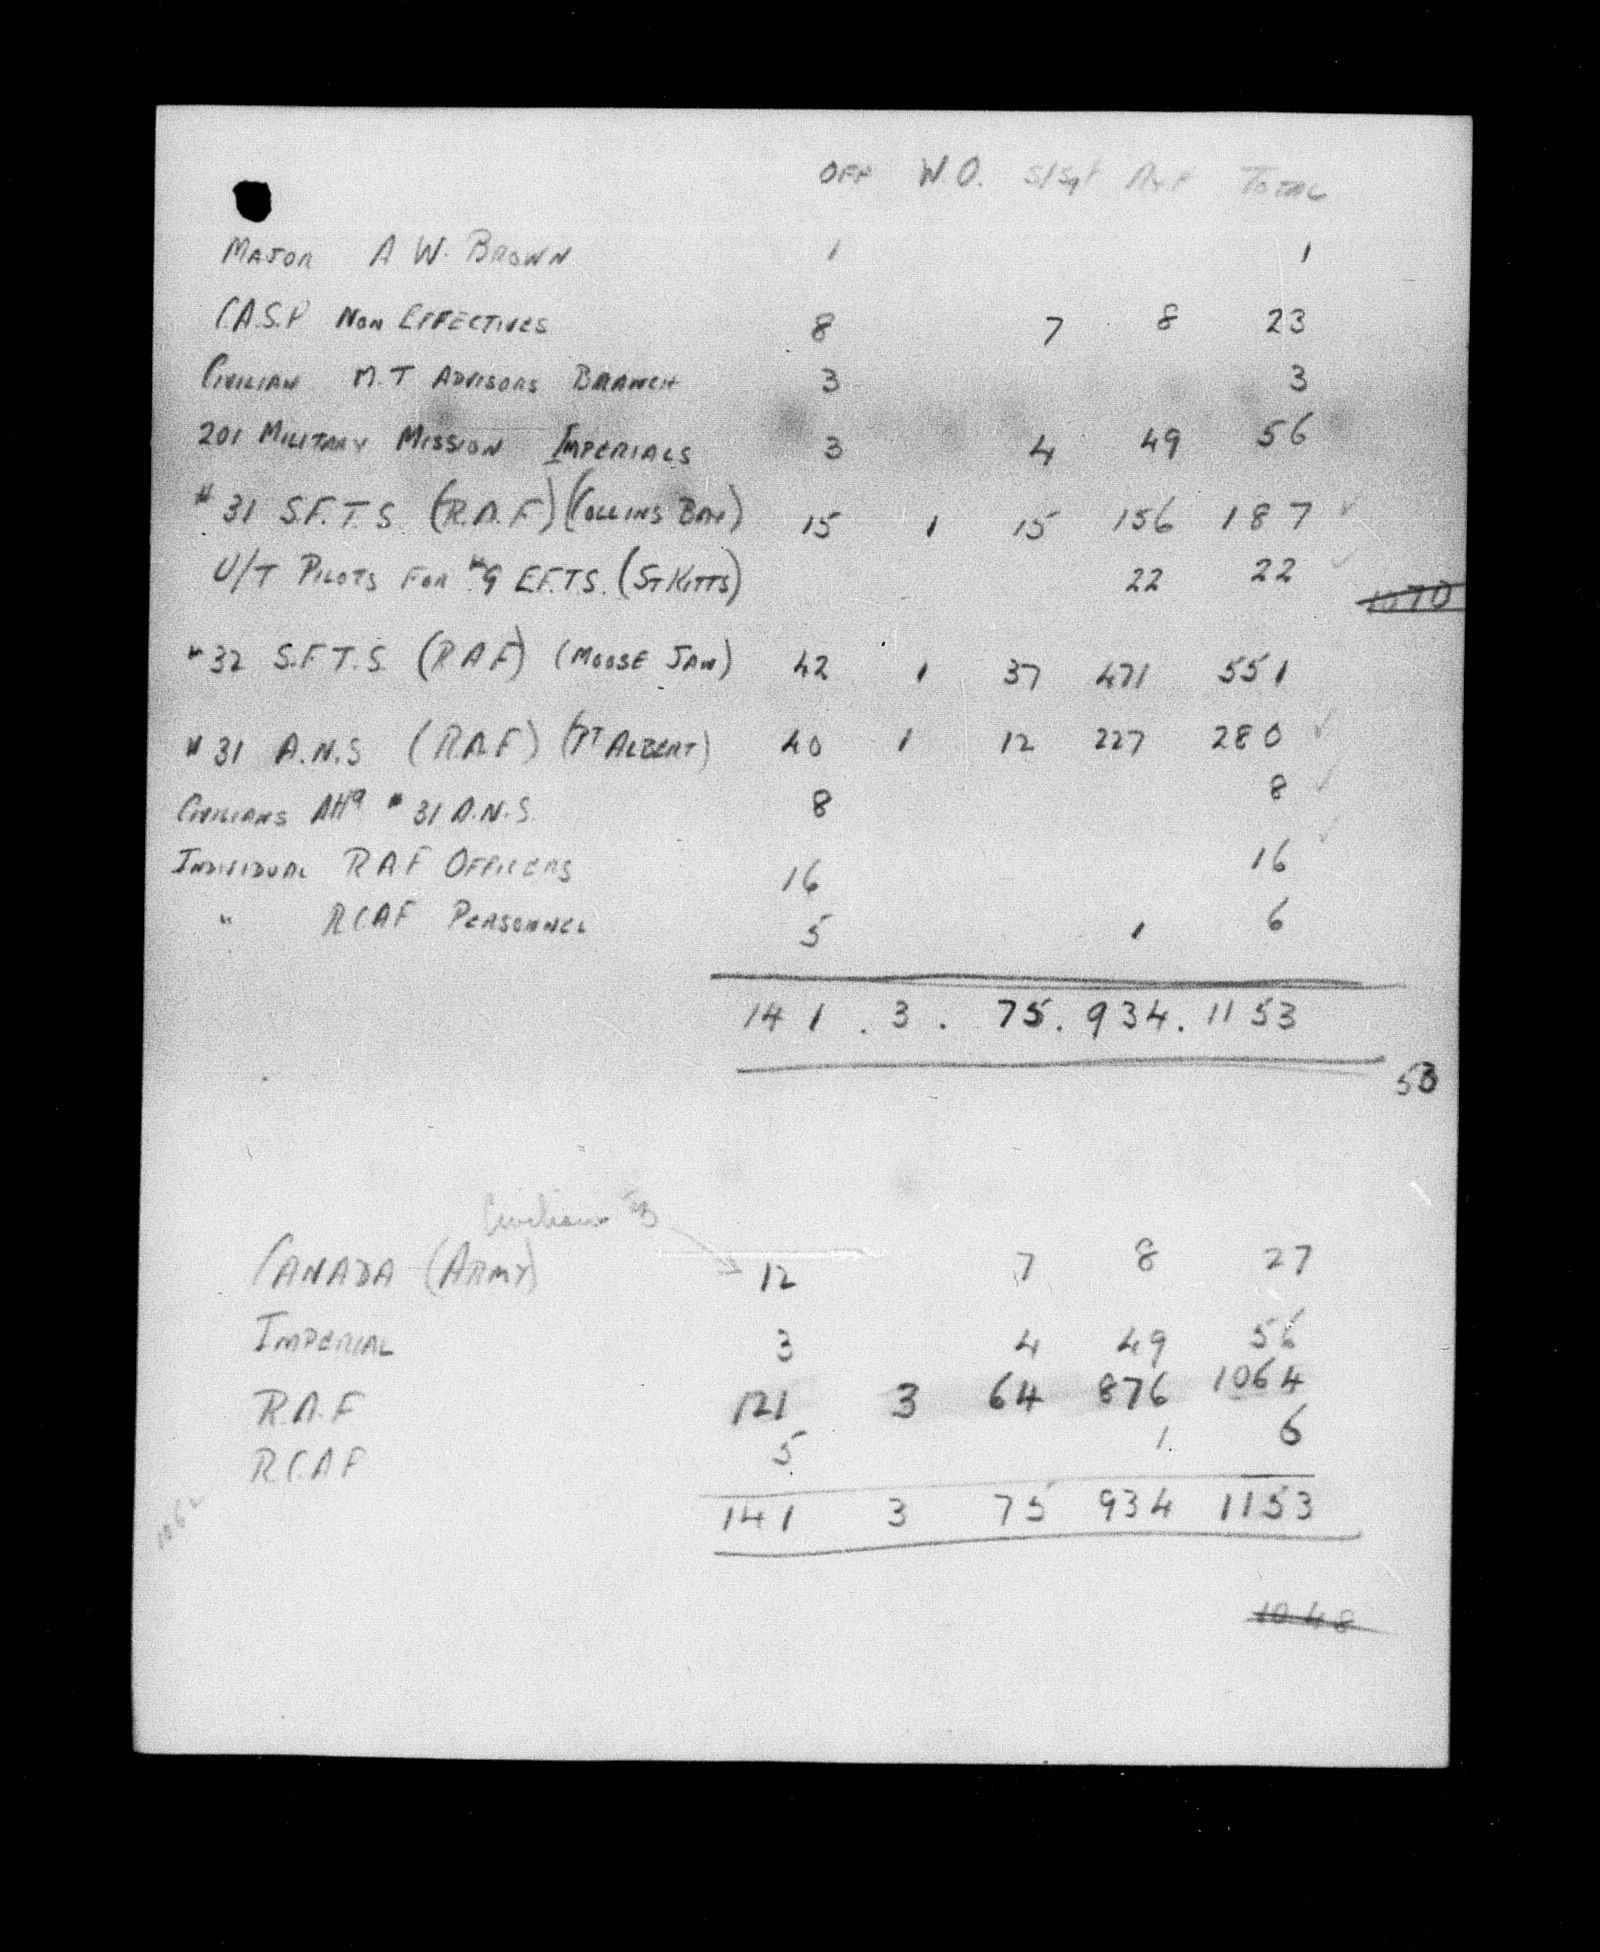 OFF W.O. S/Sgt R&F TOTAL
MAJOR A W. BROWN 1 1
C.A.S.F NON EFFECTIVES 8 7 8 23
CIVILIAN M.T ADVISORS BRANCH 3 3
201 MILITARY MISSION IMPERIALS 3 4 49 56
#31 S.F.T.S. (R.A.F) (COLLINS BAY) 15 1 15 156 187 ✓
U/T PILOTS FOR #9 E.F.T.S. (ST KITTS) 22 22 ✓
1070
#32 S.F.T.S. (RAF) (MOOSE JAW) 42 1 37 471 551
#31 A.N.S (R.A.F) (PT ALBERT) 40 1 12 227 280 ✓
CIVILIANS #31 A.N.S. 8 8 ✓
INDIVIDUAL RAF OFFICERS 16 16 ✓
" RCAF PERSONNEL 5 1 6
141 . 3 . 75. 934. 1153
53
Civilians 3
CANADA (ARMY) 12 7 8 27
IMPERIAL 3 4 49 56
R.A.F 121 3 64 876 1064
R.C.A.F 5 1 6
141 3 75 934 1153
1048